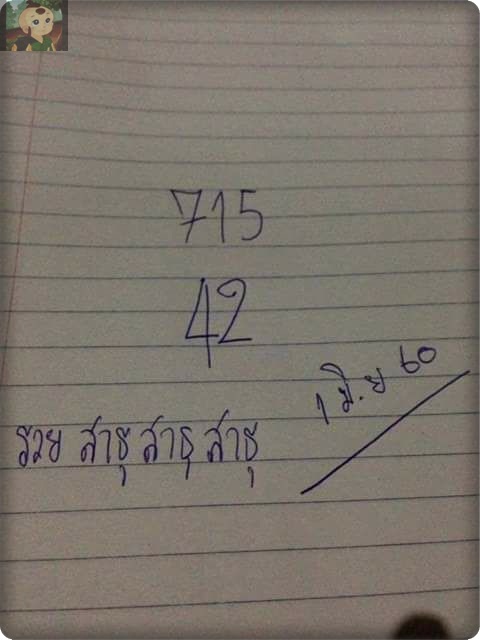 715
42
1 มิ.ย 60
รวย สาธุ สาธุ สาธุ